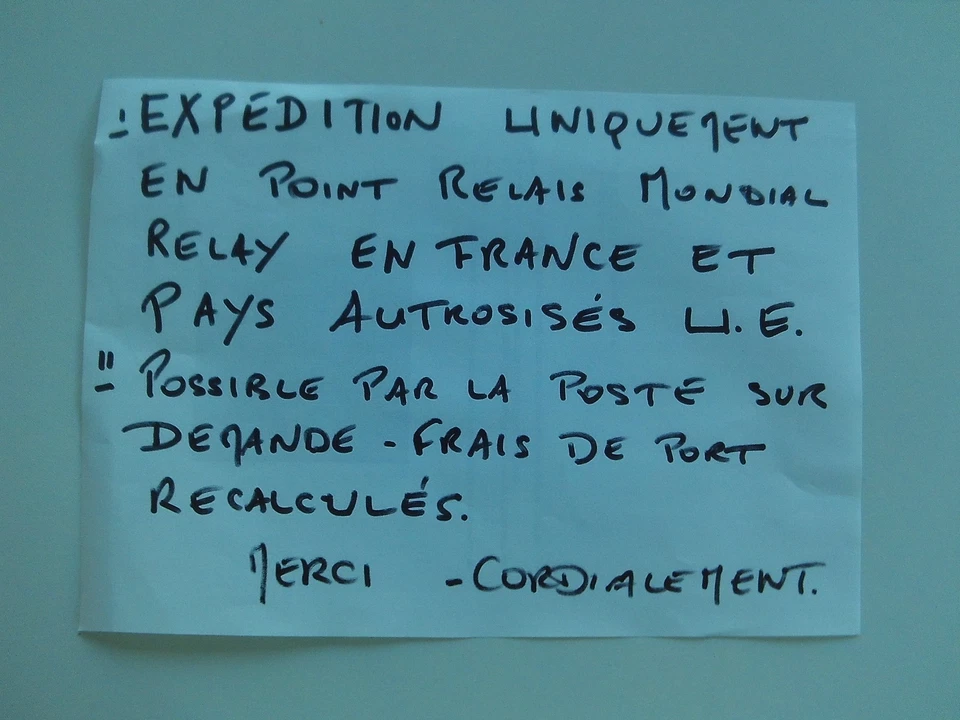 - EXPÉDITION UNIQUEMENT
EN POINT RELAIS MONDIAL
RELAY EN FRANCE ET
PAYS AUTROSISÉS U.E.
" - POSSIBLE PAR LA POSTE SUR
DEMANDE - FRAIS DE PORT
RECALCULÉS.
MERCI - CORDIALEMENT.